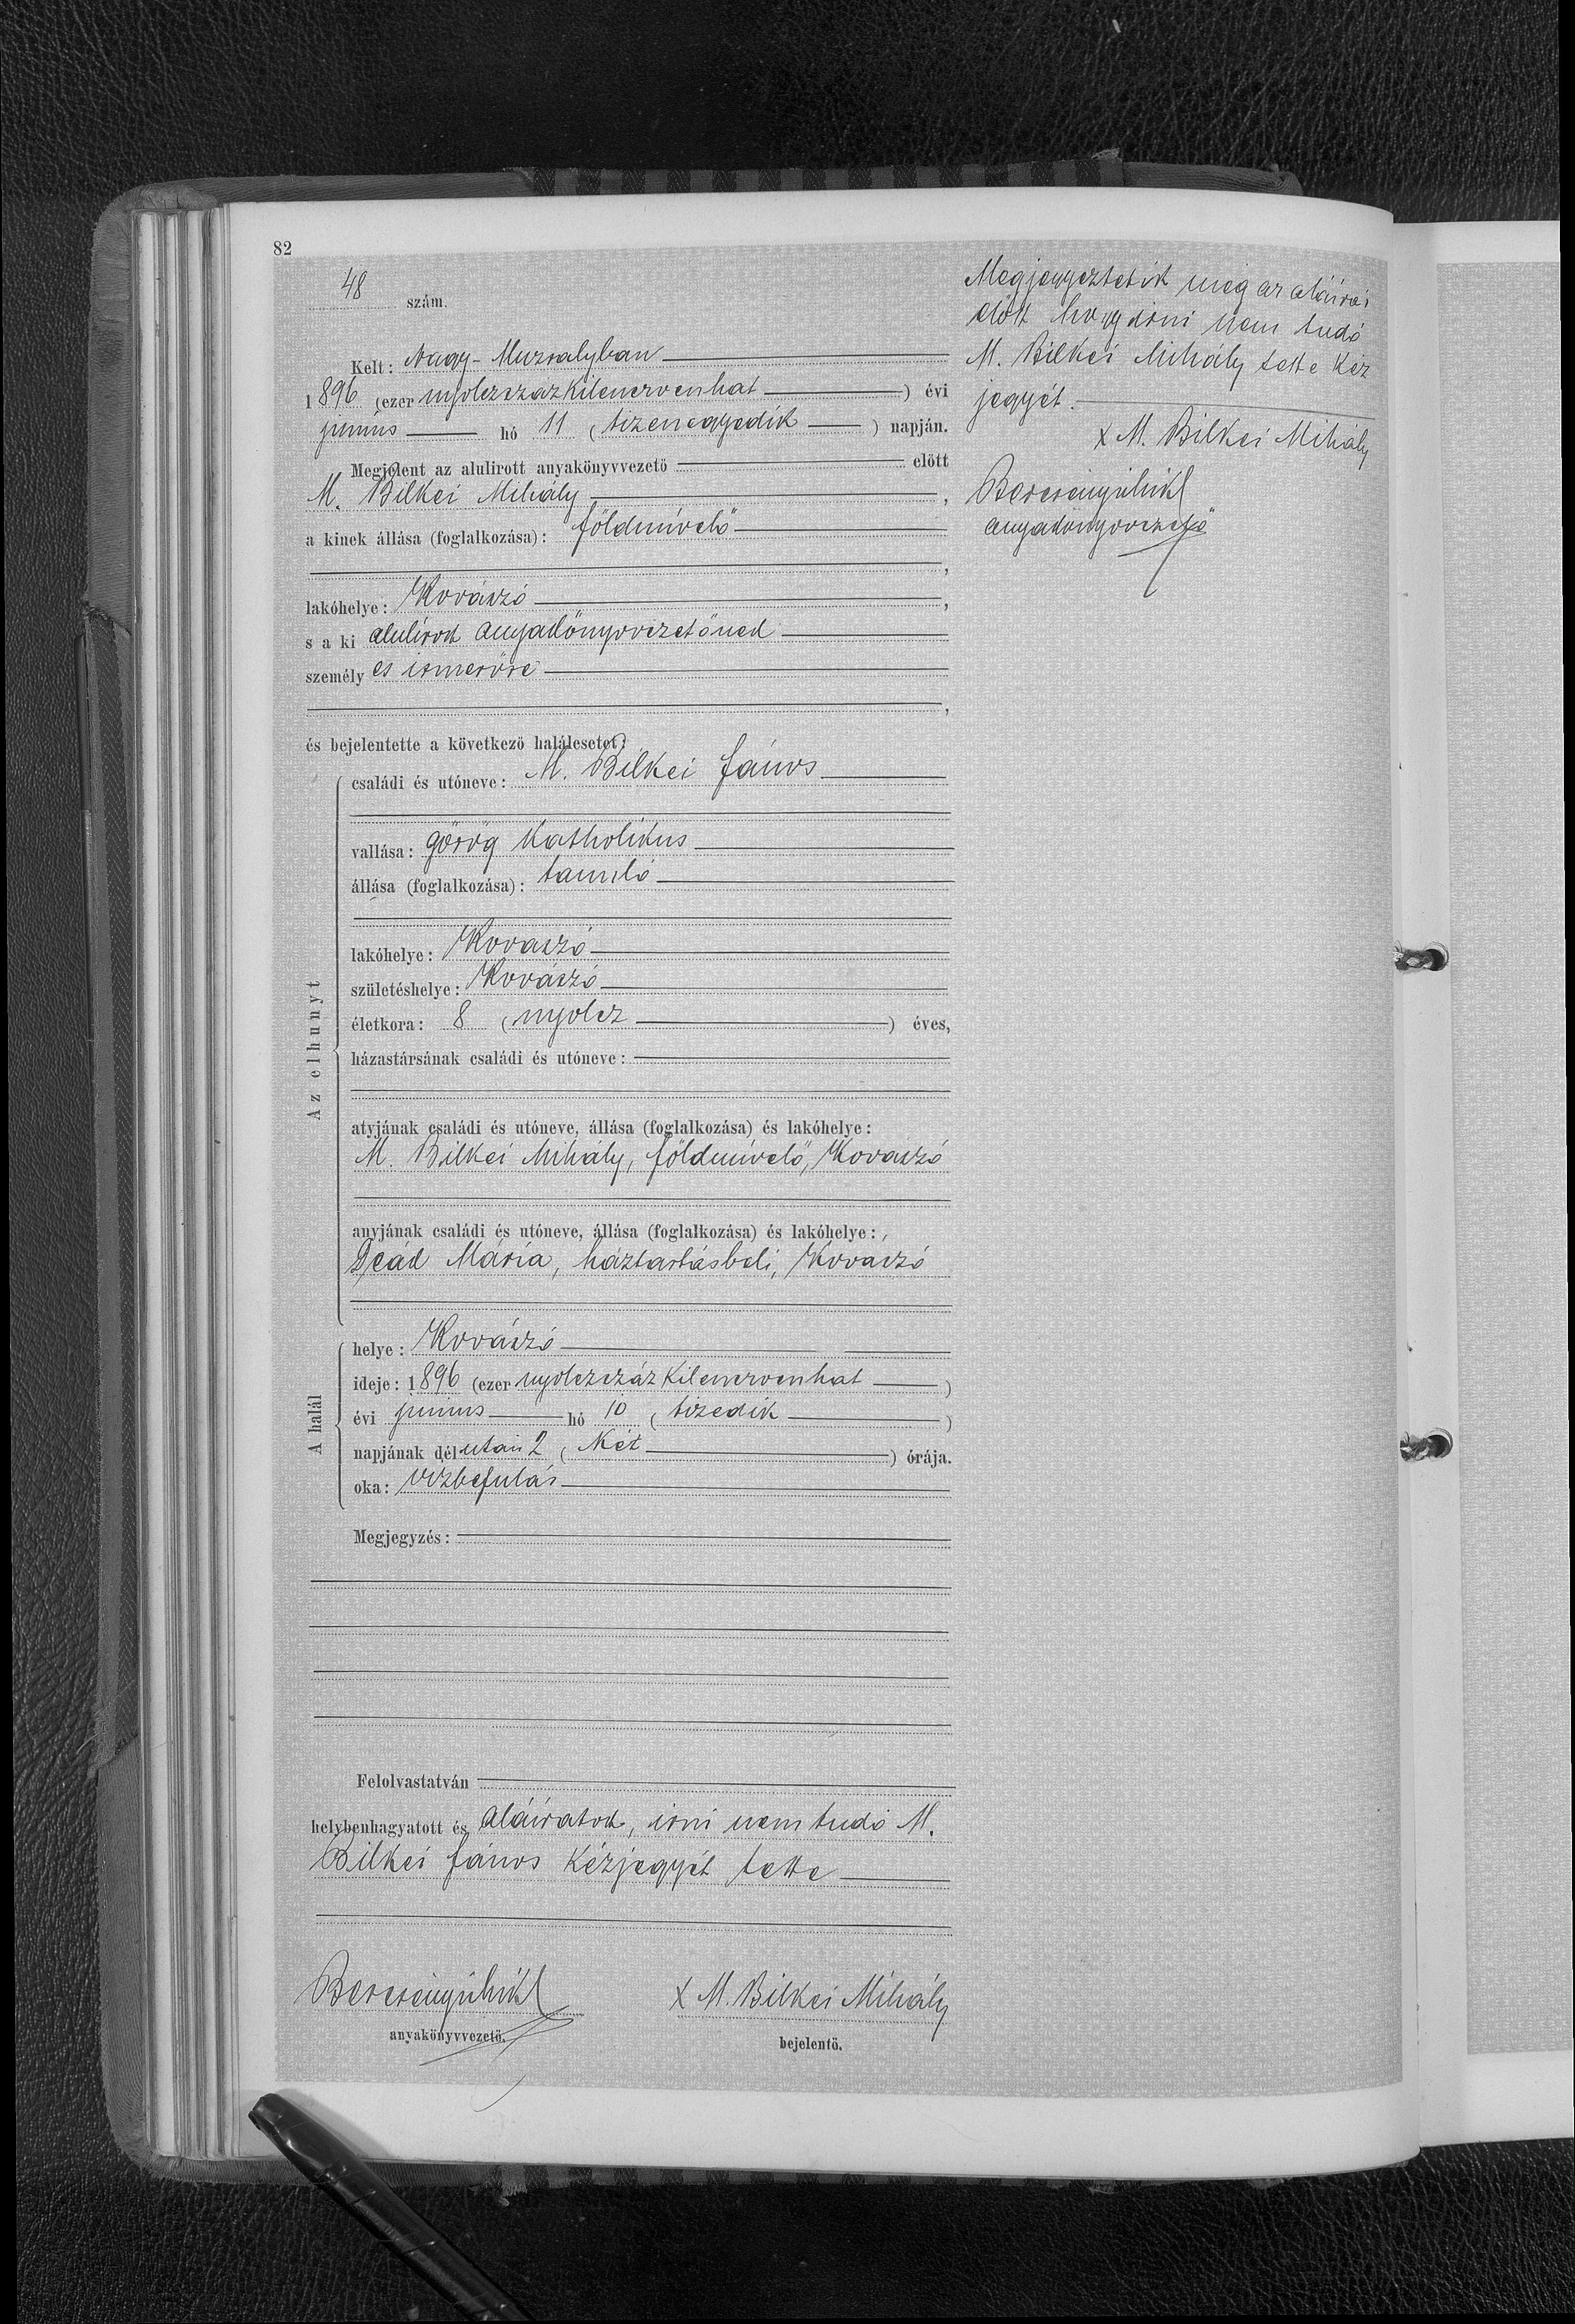 82
48 szám.
Kelt: Nagy-Muzsalyban
1896 (ezer nyolczszázkilenczvenhat) évi
junius hó 11 (tizenegyedik) napján.
Megjelent az alulirott anyakönyvvezető előtt
M. Bilkei Mihály,
a kinek állása (foglalkozása): földmívelő
,
lakóhelye: Kovászó,
s a ki alulirott anyakönyvvezetőnek
személyes ismerőse
,
és bejelentette a következő halálesetet:
Az elhunyt
családi és utóneve: M. Bilkei János
vallása: görög katholikus
állása (foglalkozása): tanuló
lakóhelye: Kovaszó
születéshelye: Kovászó
életkora: 8 (nyolcz) éves,
házastársának családi és utóneve:
atyjának családi és utóneve, állása (foglalkozása) és lakóhelye:
M. Bilkei Mihály, földmívelő, Kovaszó
anyjának családi és utóneve, állása (foglalkozása) és lakóhelye:
Deák Mária, háztartásbeli, Kovaszó
A halál
helye: Kovászó
ideje: 1896 (ezer nyolczszázkilenczvenhat)
évi junius hó 10 (tizedik)
napjának délután 2 (két) órája.
oka: vízbefulás
Megjegyzés:
Felolvastatván
helybenhagyatott és aláíratott, írni nem tudó M.
Bilkei János kézjegyét tette
anyakönyvvezető.
x M. Bilkei Mihály
bejelentő.
Megjegyeztetik még az aláírás
előtt hogy írni nem tudó
M. Bilkei Mihály tette kéz
jegyét.
x M. Bilkei Mihály
anyakönyvvezető